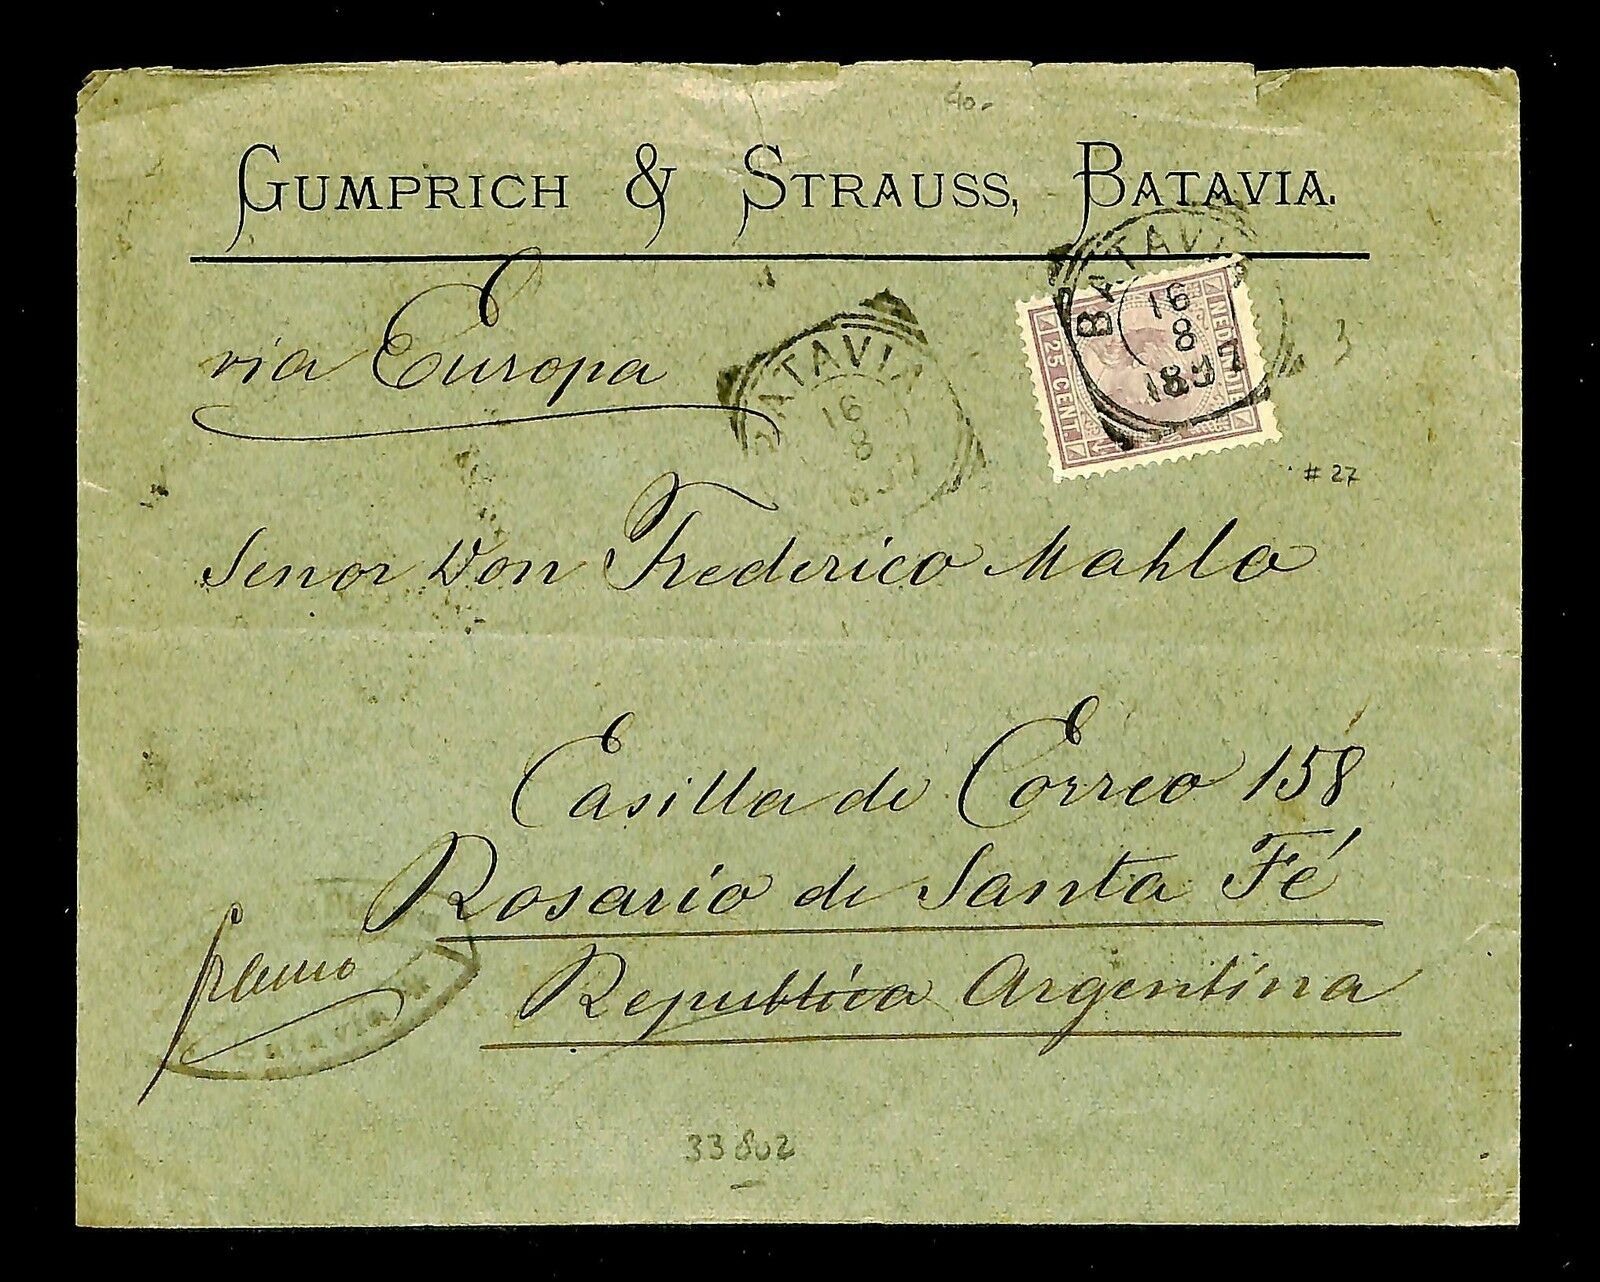 40.-
GUMPRICH & STRAUSS, BATAVIA.
via Europa
BATAVIA
16
8
1897
BATAVIA
16
8
1897
NED. INDIE
25 CENT.
3
# 27
Senor Don Frederico Mahla
Casilla de Correo 158
Rosario de Santa Fé
Republica Argentina
franco
BATAVIA
33802